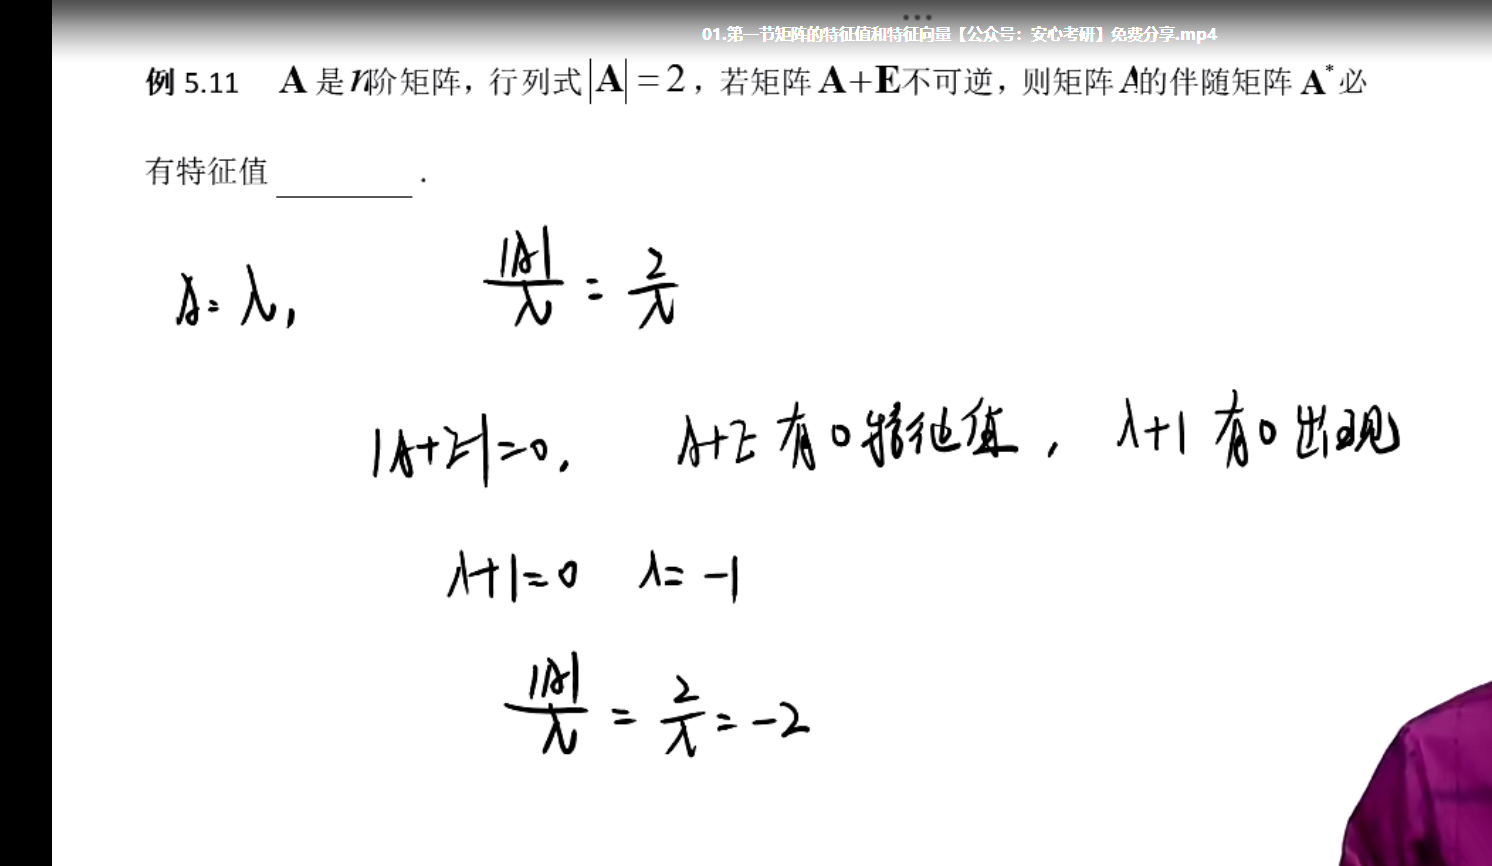 01.第一节矩阵的特征值和特征向量【公众号：安心考研】免费分享.mp4
例 5.11 A 是n阶矩阵，行列式|A|=2，若矩阵 A+E不可逆，则矩阵A的伴随矩阵 A* 必
有特征值 ________ .
A=λ, |A|/λ = 2/λ
|A+E|=0, A+E 有0特征值, λ+1 有0出现
λ+1=0 λ=-1
|A|/λ = 2/λ = -2